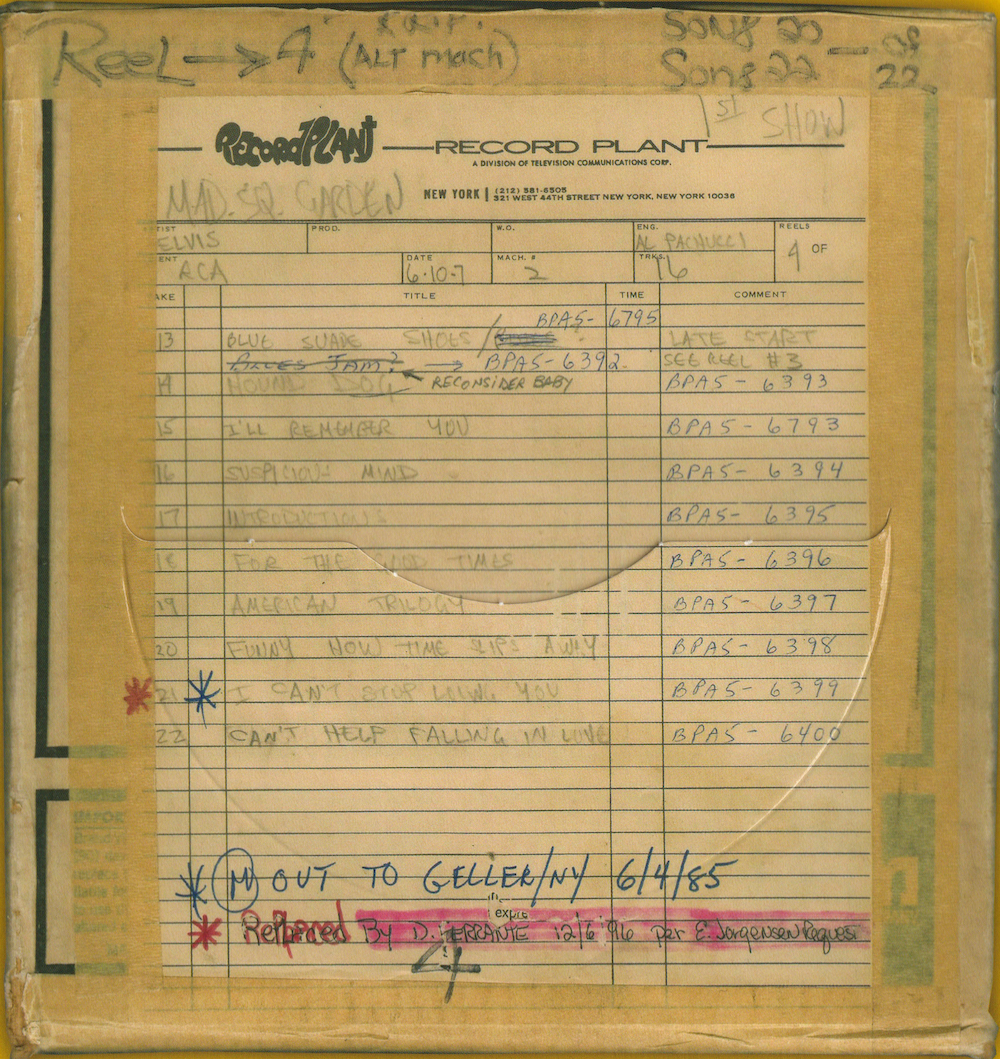 REEL → 4 (ALT mach)
SONG 20 —
SONG 22 22
1ST SHOW
RECORD PLANT — RECORD PLANT
A DIVISION OF TELEVISION COMMUNICATIONS CORP.
NEW YORK | (212) 581-6505
321 WEST 44TH STREET NEW YORK, NEW YORK 10036
MAD. SQ. GARDEN
TIST PROD. W.O. ENG. REELS
ELVIS AL PACHUCCI 4 OF
ENT DATE MACH. # TRKS.
RCA 6-10-7 2 16
AKE TITLE TIME COMMENT
BPA5- 6795
13 BLUE SUADE SHOES / LATE START
BLUES JAM? → BPA5-6392. SEE REEL #3
14 HOUND DOG RECONSIDER BABY BPA5- 6393
15 I'LL REMEMBER YOU BPA5- 6793
16 SUSPICIOUS MIND BPA5- 6394
17 INTRODUCTIONS BPA5- 6395
18 FOR THE GOOD TIMES BPA5- 6396
19 AMERICAN TRILOGY BPA5- 6397
20 FUNNY HOW TIME SLIPS AWAY BPA5- 6398
* 21 * I CAN'T STOP LOVING YOU BPA5- 6399
22 CAN'T HELP FALLING IN LOVE BPA5- 6400
* M OUT TO GELLER/NY 6/4/85
* By D. FERRANTE 12/6 '96 per E. Jorgensen Request
4